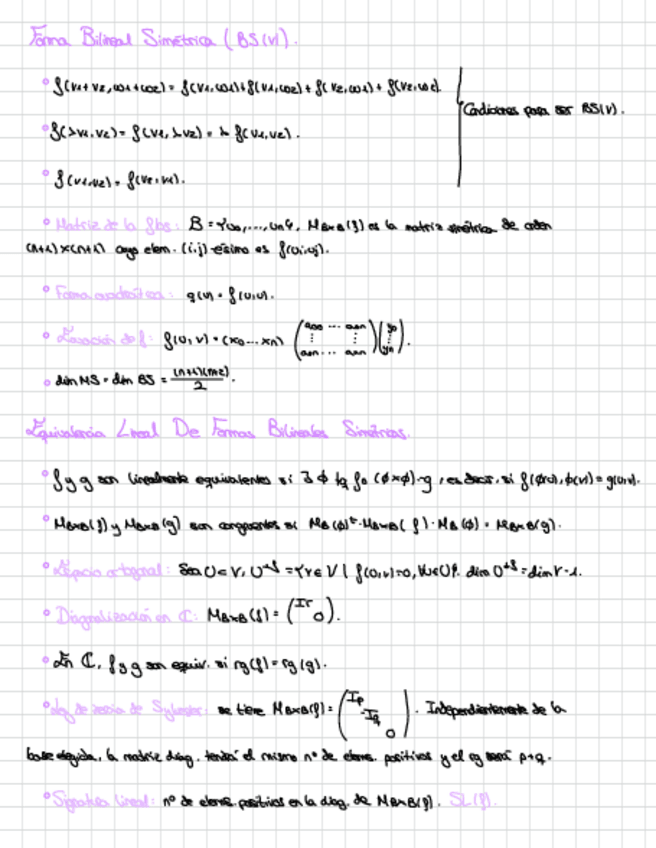 Forma Bilineal Simétrica (BS(V)).
° f(v1+v2,ω1+ω2) = f(v1,ω1)+f(v1,ω2) + f(v2,ω1) + f(v2,ω2).
Condiciones para ser BS(V).
° f(λv1,v2) = f(v1,λv2) = λ f(v1,v2).
° f(v1,v2) = f(v2,v1).
° Matriz de la fbs: B = {u0,...,un}, MBxB(f) es la matriz simétrica de orden
(n+1)x(n+1) cuyo elem. (i,j)-ésimo es f(ui,uj).
° Forma cuadrática: q(u) = f(u,u).
° Ecuación de f: f(u,v) = (x0...xn) (a00 ... a0n ⋮ ⋮ a0n ... ann)(y0 ⋮ yn).
° dim MS = dim BS = (n+1)(n+2)/2.
Equivalencia Lineal De Formas Bilineales Simétricas.
° f y g son linealmente equivalentes si ∃ φ tq f∘(φxφ)=g, es decir, si f(φ(u),φ(v)) = g(u,v).
° MBxB(f) y MBxB(g) son congruentes si MB(φ)ᵗ·MBxB(f)·MB(φ) = MBxB(g).
° Espacio ortogonal: Sea U∈V, U⊥f = {v∈V | f(u,v)=0, ∀u∈U}. dim U⊥f = dim V-1.
° Diagonalización en ℂ: MBxB(f) = (Ir 0).
° En ℂ, f y g son equiv. si rg(f) = rg(g).
° Ley de inercia de Sylvester: se tiene MBxB(f) = (Ip -Iq 0). Independientemente de la
base elegida, la matriz diag. tendrá el mismo nº de elems. positivos y el rg será p+q.
° Signatura lineal: nº de elems. positivos en la diag. de MBxB(f). SL(f).